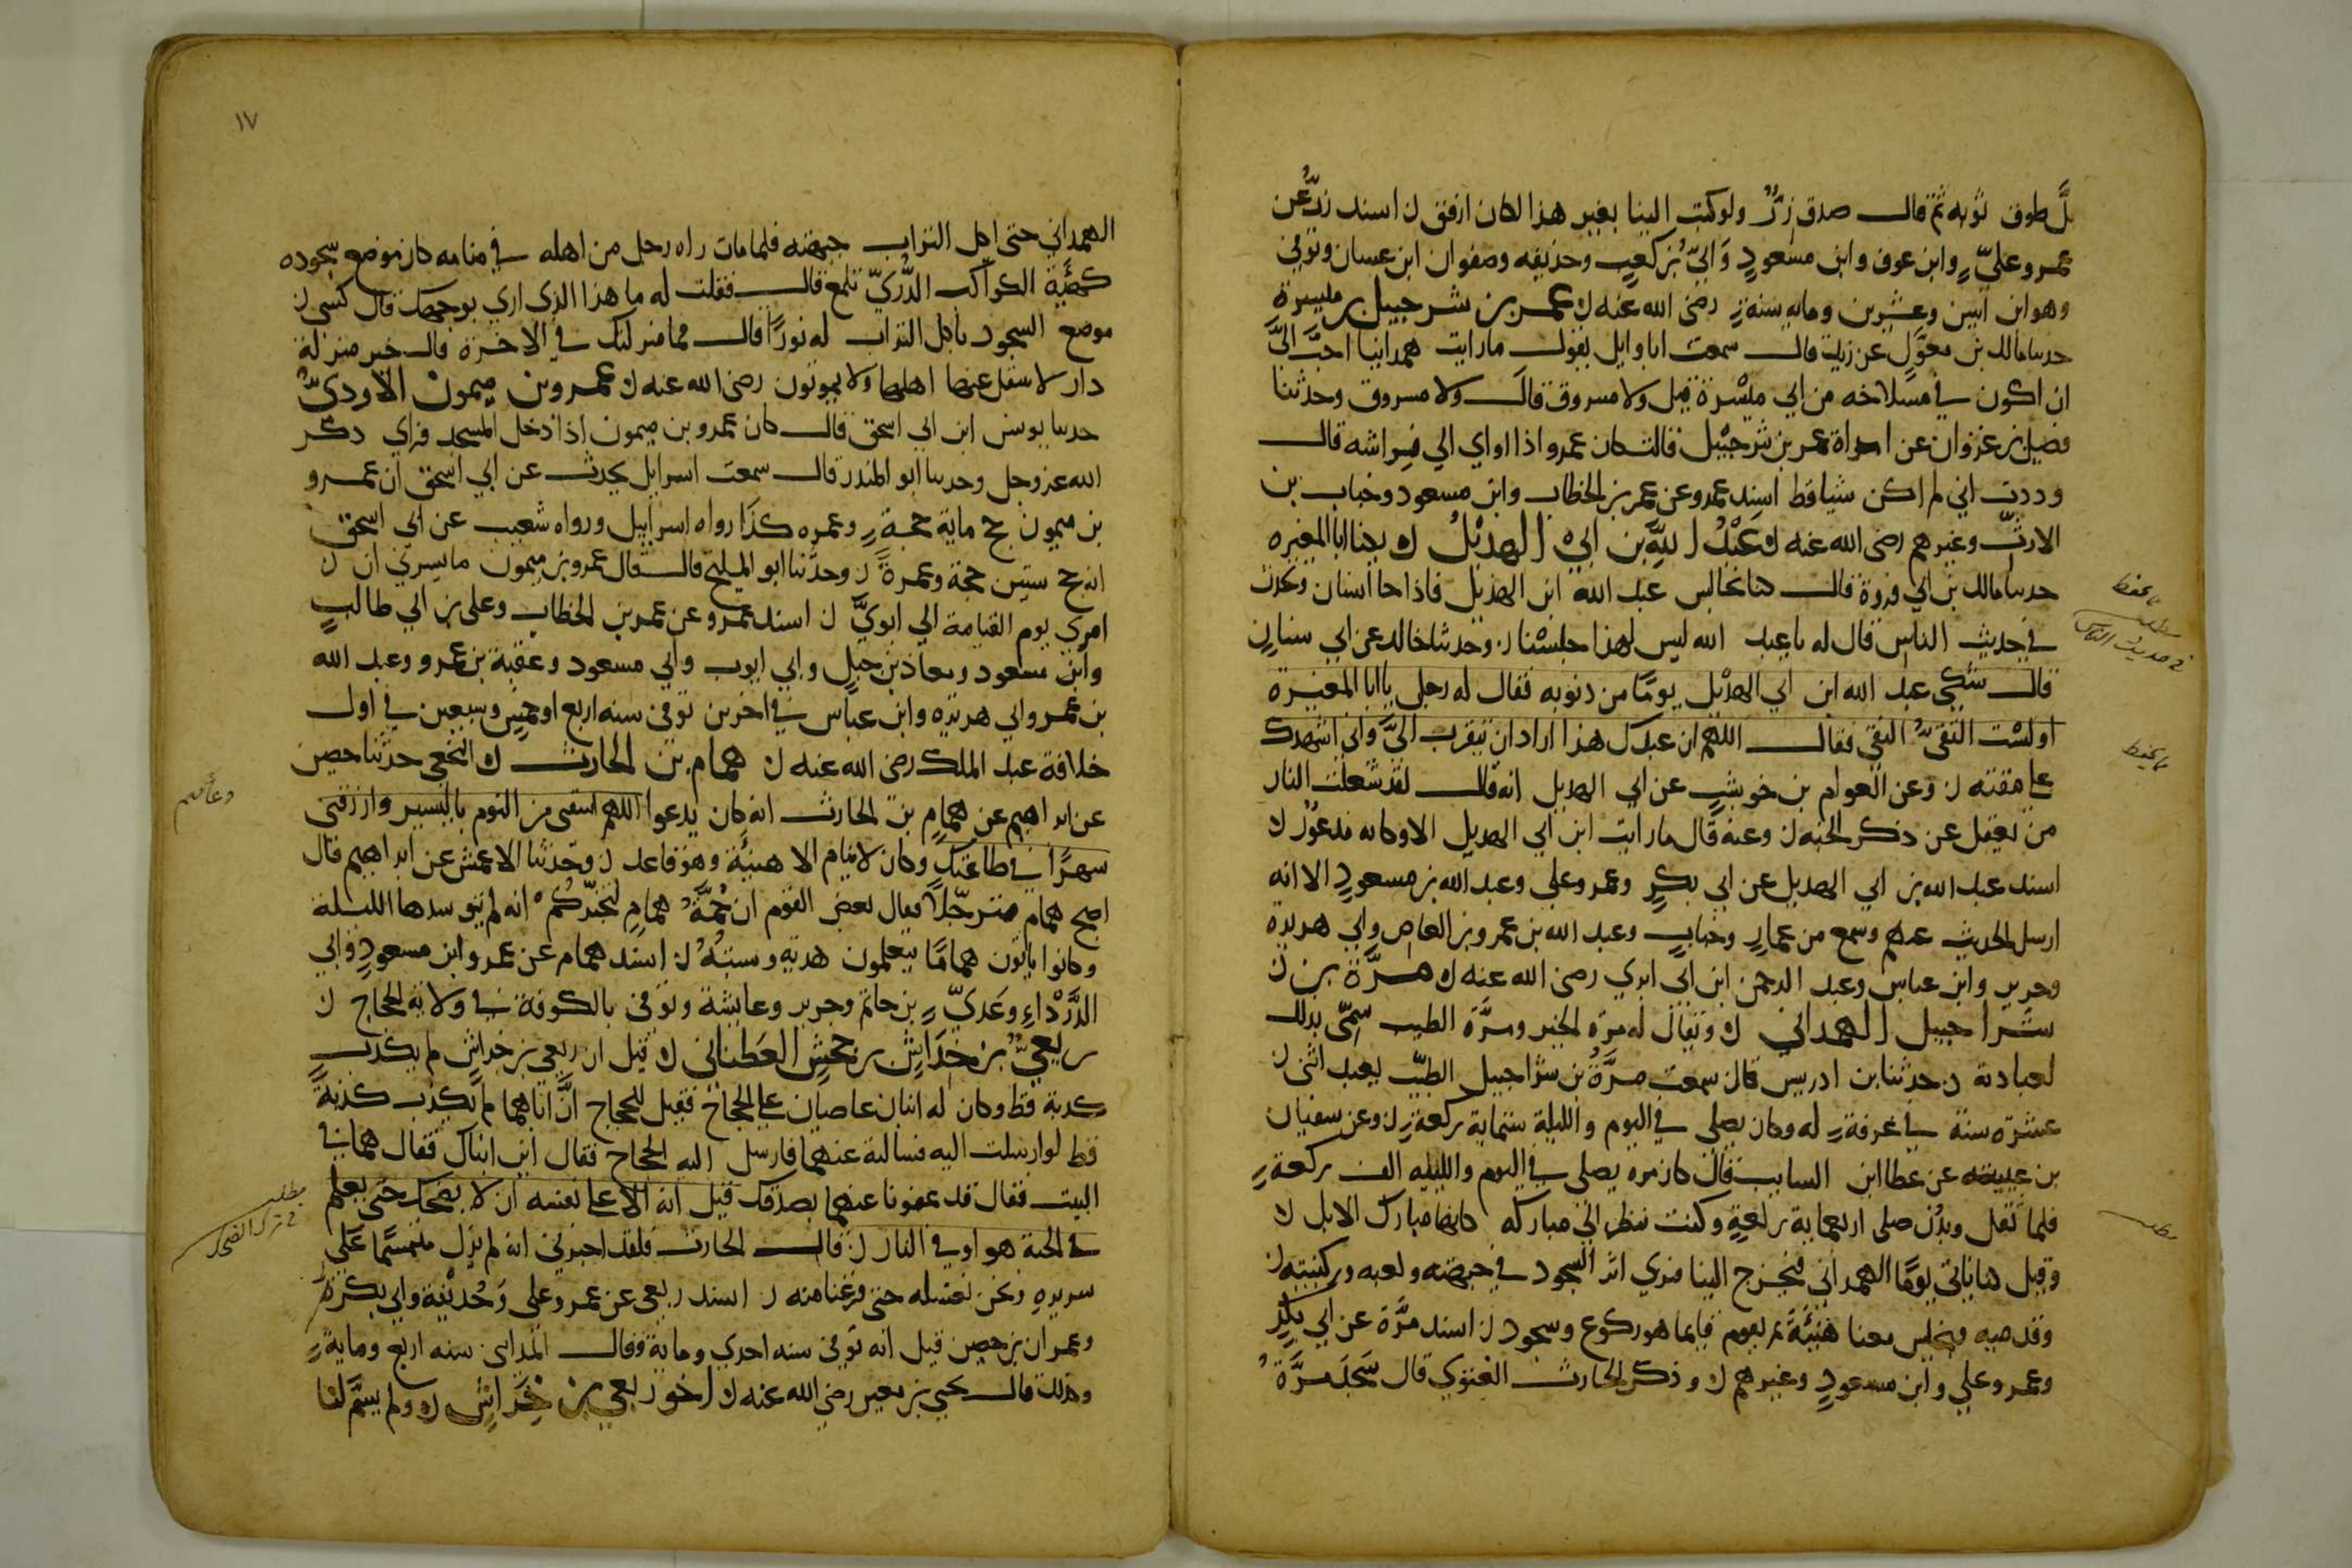 بلَّ طرف ثوبه ثم قال صدق زرٌّ ولو كتب الينا بغير هذا لكان ارفق ن اسند زرٌّ عن
عمر وعليٍّ وابن عوف وابن مسعودٍ وَابيّ بْن كعبٍ وحذيفه وصفوان ابن عسان وتوفي
وهو ابن اثنين وعشرين ومايه سنةٍ رضى الله عنه ن عمرو بن شرحبيل بو ميسرة
حدثنا مالك بن مغوَلٍ عن زبيد قال سمعت ابا وايل يقول ما رايت همدانيا احبَّ اليَّ
ان اكون في مسلاخه من ابي ميْسَرة قيل ولا مسروق قالَ ولا مسروق وحدثنا
فضيل بن غزوان عن امراة عمرو بن شرحبيل قالت كان عمرو اذا اواي الي فراشه قال
وددت اني لم اكن شيا قط اسند عمرو عن عمر بن الخطاب وابن مسعود وخباب بن
الارتّ وغيرهم رضى الله عنه ن عَبْدُ اللهِ بن ابيْ الهذيْلُ ن يكنا ابا المغيره
حدثنا مالك بن ابي فروة قال كنا نجالس عبد الله ابن الهذيل فاذا جا انسان وتحدث
في حديث الناس قال له يا عبد الله ليس لهذا جلسْنا ن وحدثنا خالد عن ابي سنانٍ
قال شكي عبد الله ابن ابي الهذيل يومًا من ذنوبه فقال له رجل يا ابا المغيرة
اولسْت التقيُّ النقي فقال اللهم ان عبدك هذا اراد ان يتقرب اليَّ واني اشهدك
علي مقته ن وعن العوام بن حوشبٍ عن ابي الهذيل انه قال لقد شغلت النار
من يعقل عن ذكر الجنه ن وعنه قال ما رايت ابن ابي الهذيل الا وكانه مذعورٌ ن
اسند عبد الله بن ابي الهذيل عن ابي بكرٍ وعمر وعلي وعبد الله بن مسعودٍ الا انه
ارسل الحديث عنهم وسمع من عمارٍ وخبابٍ وعبد الله بن عمرو بن العاص وابي هريره
وجرير وابن عباس وعبد الرحمن ابن ابي ابزي رضى الله عنه ن مرَّة بن
شراحبيل الهمداني ن ويقال له مرة الخير ومرَّة الطيب سمّى بذلك
لعبادته ن حدثنا بن ادريس قال سمعت مرَّةُ بن شراحبيل الطيّب يعبد اثني
عشرة سنة في غرفةٍ له وكان يصلى في اليوم والليلة ستماية ركعةٍ ن وعن سفيان
بن عيينه عن عطا ابن السايب قال كان مره يصلى في اليوم والليله الف ركعةٍ
فلما ثقل وبدُن صلى اربعماية ركعةٍ وكنت تنظر الي مباركه كانها مبارك الابل ن
وقيل كنا ناتي يومًا الهمداني فيخرج الينا فنري اثر السجود في جبهته وكفيه وركبتيه ن
وقدميه فيجلس معنا هُنيْئةً ثم يقوم فانما هو ركوع وسجود ن اسند مرَّة عن ابي بكرٍ
وعمر وعلي وابن مسعودٍ وغيرهم ن وذكر الحارث الغنوي قال سَجَدَ مرَّةُ
ما يحفظ
مطلب
في حديث الناس
ما يحفظ
مطلب
١٧
الهمداني حتى اكل التراب جبهته فلما مات راه رجل من اهله في منامه كان موضع سجوده
كهيّة الكواكب الدُّرّيّ تلمع قال فقلت له ما هذا الذي اري بوجهك قال كسى ن
موضع السجود باكل التراب له نورًا قال فما منزلتك في الاخرة قال خير منزلة
دار لا ينتقل عنها اهلها ولا يموتون رضى الله عنه ن عمرو بن ميمون الاوديّ
حدثنا يونس ابن ابي اسحق قال كان عمرو بن ميمون اذا دخل المسجد فراي ذكر
الله عز وجل وحدثنا ابو المنذر قال سمعت اسرايل يحدث عن ابي اسحق ان عمرو
بن ميمون حج ماية حجةٍ وعمره كذا رواه اسرايل ورواه شعيب عن ابي اسحق
انه حج ستين حجة وعمرةً ن وحدَّثنا ابو المليح قال قال عمرو بن ميمون ما يسرني ان ن
امري يوم القيامة الي ابويَّ ن اسند عمرو عن عمر بن الخطاب وعلى بن ابي طالبٍ
وابن مسعود ومعاذ بن جبلٍ وابي ايوب وابي مسعود وعقبة بن عمرو وعبد الله
بن عمر وابي هريره وابن عباس في اخرين توفي سنه اربع او خمسٍ وسبعين في اول
خلافة عبد الملك رضى الله عنه ن همام بن الحارث ن النخعي حدثنا حصين
عن ابراهيم عن همامٍ بن الحارث انه كان يدعوا اللهم اشفني من النوم باليسير وارزقني
سهرًا في طاعتك وكان لا ينام الا هنيئة وهو قاعد ن وحدثنا الاعمش عن ابراهيم قال
اصبح همام مترجّلاً فقال بعض القوم ان جُمَّةَ همامٍ لتخبّركُمْ انه لم يتوسدها الليلة
وكانوا ياتون همامًا يتعلمون هديه وسنتهُ ن اسند همام عن عمر وابن مسعودٍ وابي
الدَّرْداءِ وعَديٍّ بن حاتم وجرير وعايشة وتوفي بالكوفة في ولاية الحجاج ن
ربعيُّ بن خَداشٍ بن جحشٍ الغطفاني ن قيل ان ربعي بن خراشٍ لم يكذب
كذبة قط وكان له ابنان عاصيان علي الحجاج فقيل للحجاج انَّ اباهما لم يكذب كذبةً
قط لو ارسلت اليه فسالته عنهما فارسل اليه الحجاج فقال اين ابناك فقال هما في
البيت فقال قد عفونا عنهما بصدقك قيل انه الا على نفسه ان لا يضحك حتى يعلم
في الجنة هو او في النار ن قال الحارث فلقد اخبرني انه لم يزل متبسمًا عَلى
سريره ونحن نغسله حتى فرغنا منه ن اسند ربعي عن عمر وعلي وَحُذيْفة وابي بكرةً
وعمران بن حصين قيل انه توفي سنه احدي وماية وقال المدايني سنه اربع ومايةٍ
وكذلك قال يحيي بن معين رضي الله عنه ن اخو ربعي بن خِرَاشٍ ن ولم يسَّم لنا
دعآء همام
مطلب
في ترك الضحك